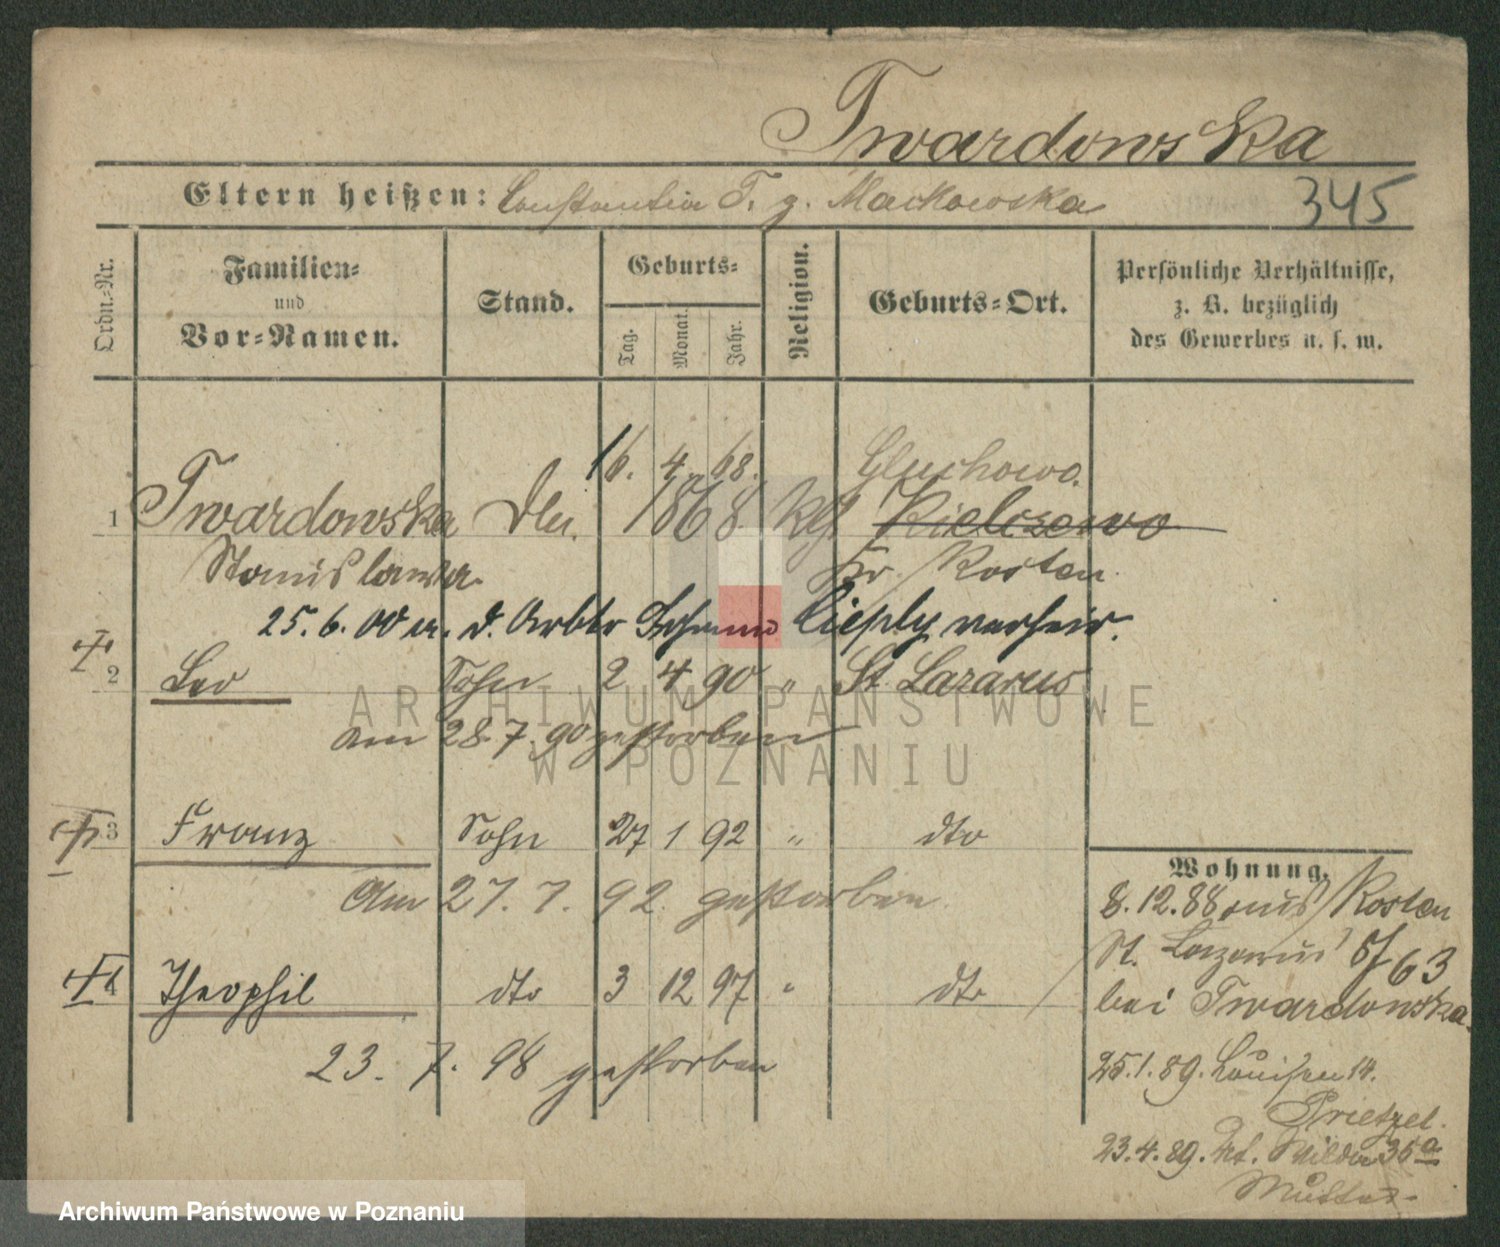 Twardowska
Eltern heißen: Constantia T. g. Maćkowska 345
Ordn.-Nr.
Familien-
und
Vor-Namen.
Stand.
Geburts-
Tag.
Monat.
Jahr.
Religion.
Geburts-Ort.
Persönliche Verhältnisse,
z. B. bezüglich
des Gewerbes u. s. w.
16. 4. 68. Gluchowo.
1 Twardowska 1868 kth Kielczewo
Stanislawa Kr. Kosten
25. 6. 00 m. d. Arbtr Johann Cieply verheir.
2 Leo Sohn 2 4 90 " St. Lazarus
am 28. 7. 90 gestorben
3 Franz Sohn 27 1 92 " dto
Am 27. 7. 92 gestorben
4 Theophil dto 3 12 97 " dto
23. 7. 98 gestorben
Wohnung.
8. 12. 88 aus Kosten
St. Lazarus 63
bei Twardowska
25. 1. 89. Louisen 14.
Prietzel.
23. 4. 89. Wilda 35a
Mutter.
ARCHIWUM PAŃSTWOWE
W POZNANIU
Archiwum Państwowe w Poznaniu